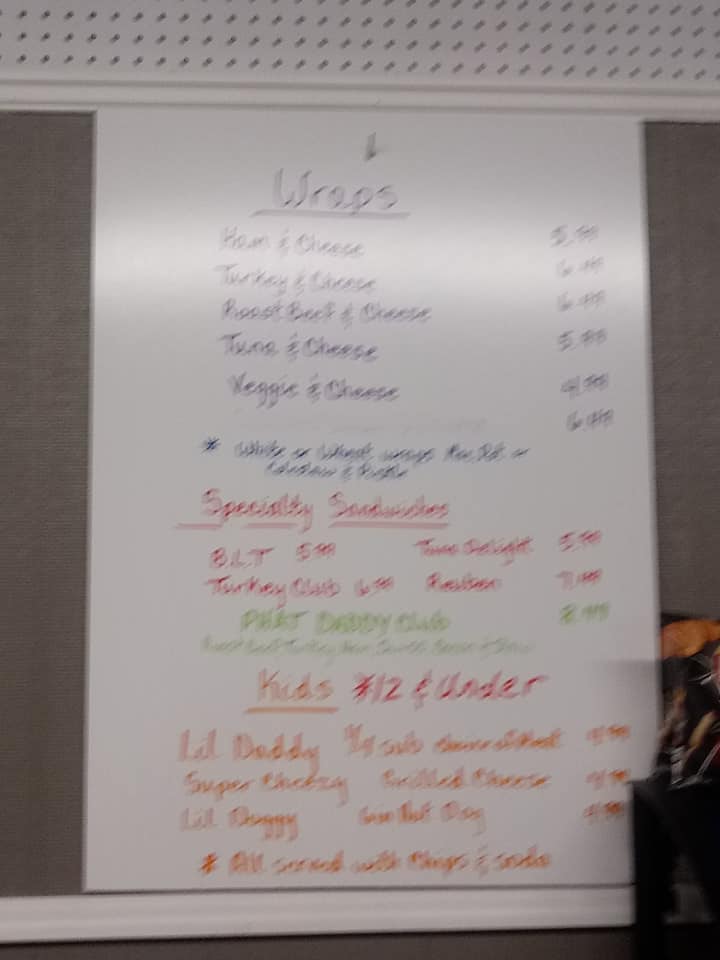 Wraps
Ham & Cheese 5.99
Turkey & Cheese 6.49
Roast Beef & Cheese 6.99
Tuna & Cheese 5.99
Veggie & Cheese 4.99
* White or Wheat wraps
Coleslaw & Pickle
Specialty Sandwiches
B.L.T 5.99 Tuna Delight 5.99
Turkey Club 6.99 Reuben
PHAT DADDY Club
Roast Beef, Turkey, Ham, Swiss, Bacon &
Kids *12 & Under
Lil Daddy 1/4 sub choice of Meat 4.99
Super Cheezy Grilled Cheese 4.99
Lil Doggy 6in Hot Dog 4.99
* All served with Chips & soda